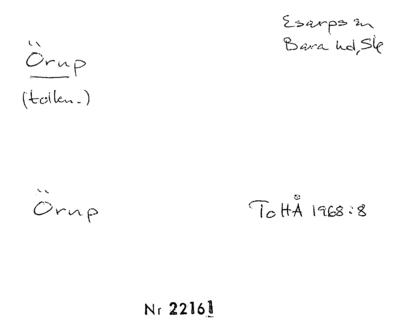 Örup
Esarps sn
Bara hd, Sk
(tolkn.)
Örup
ToHÅ 1968:8
Nr 22161